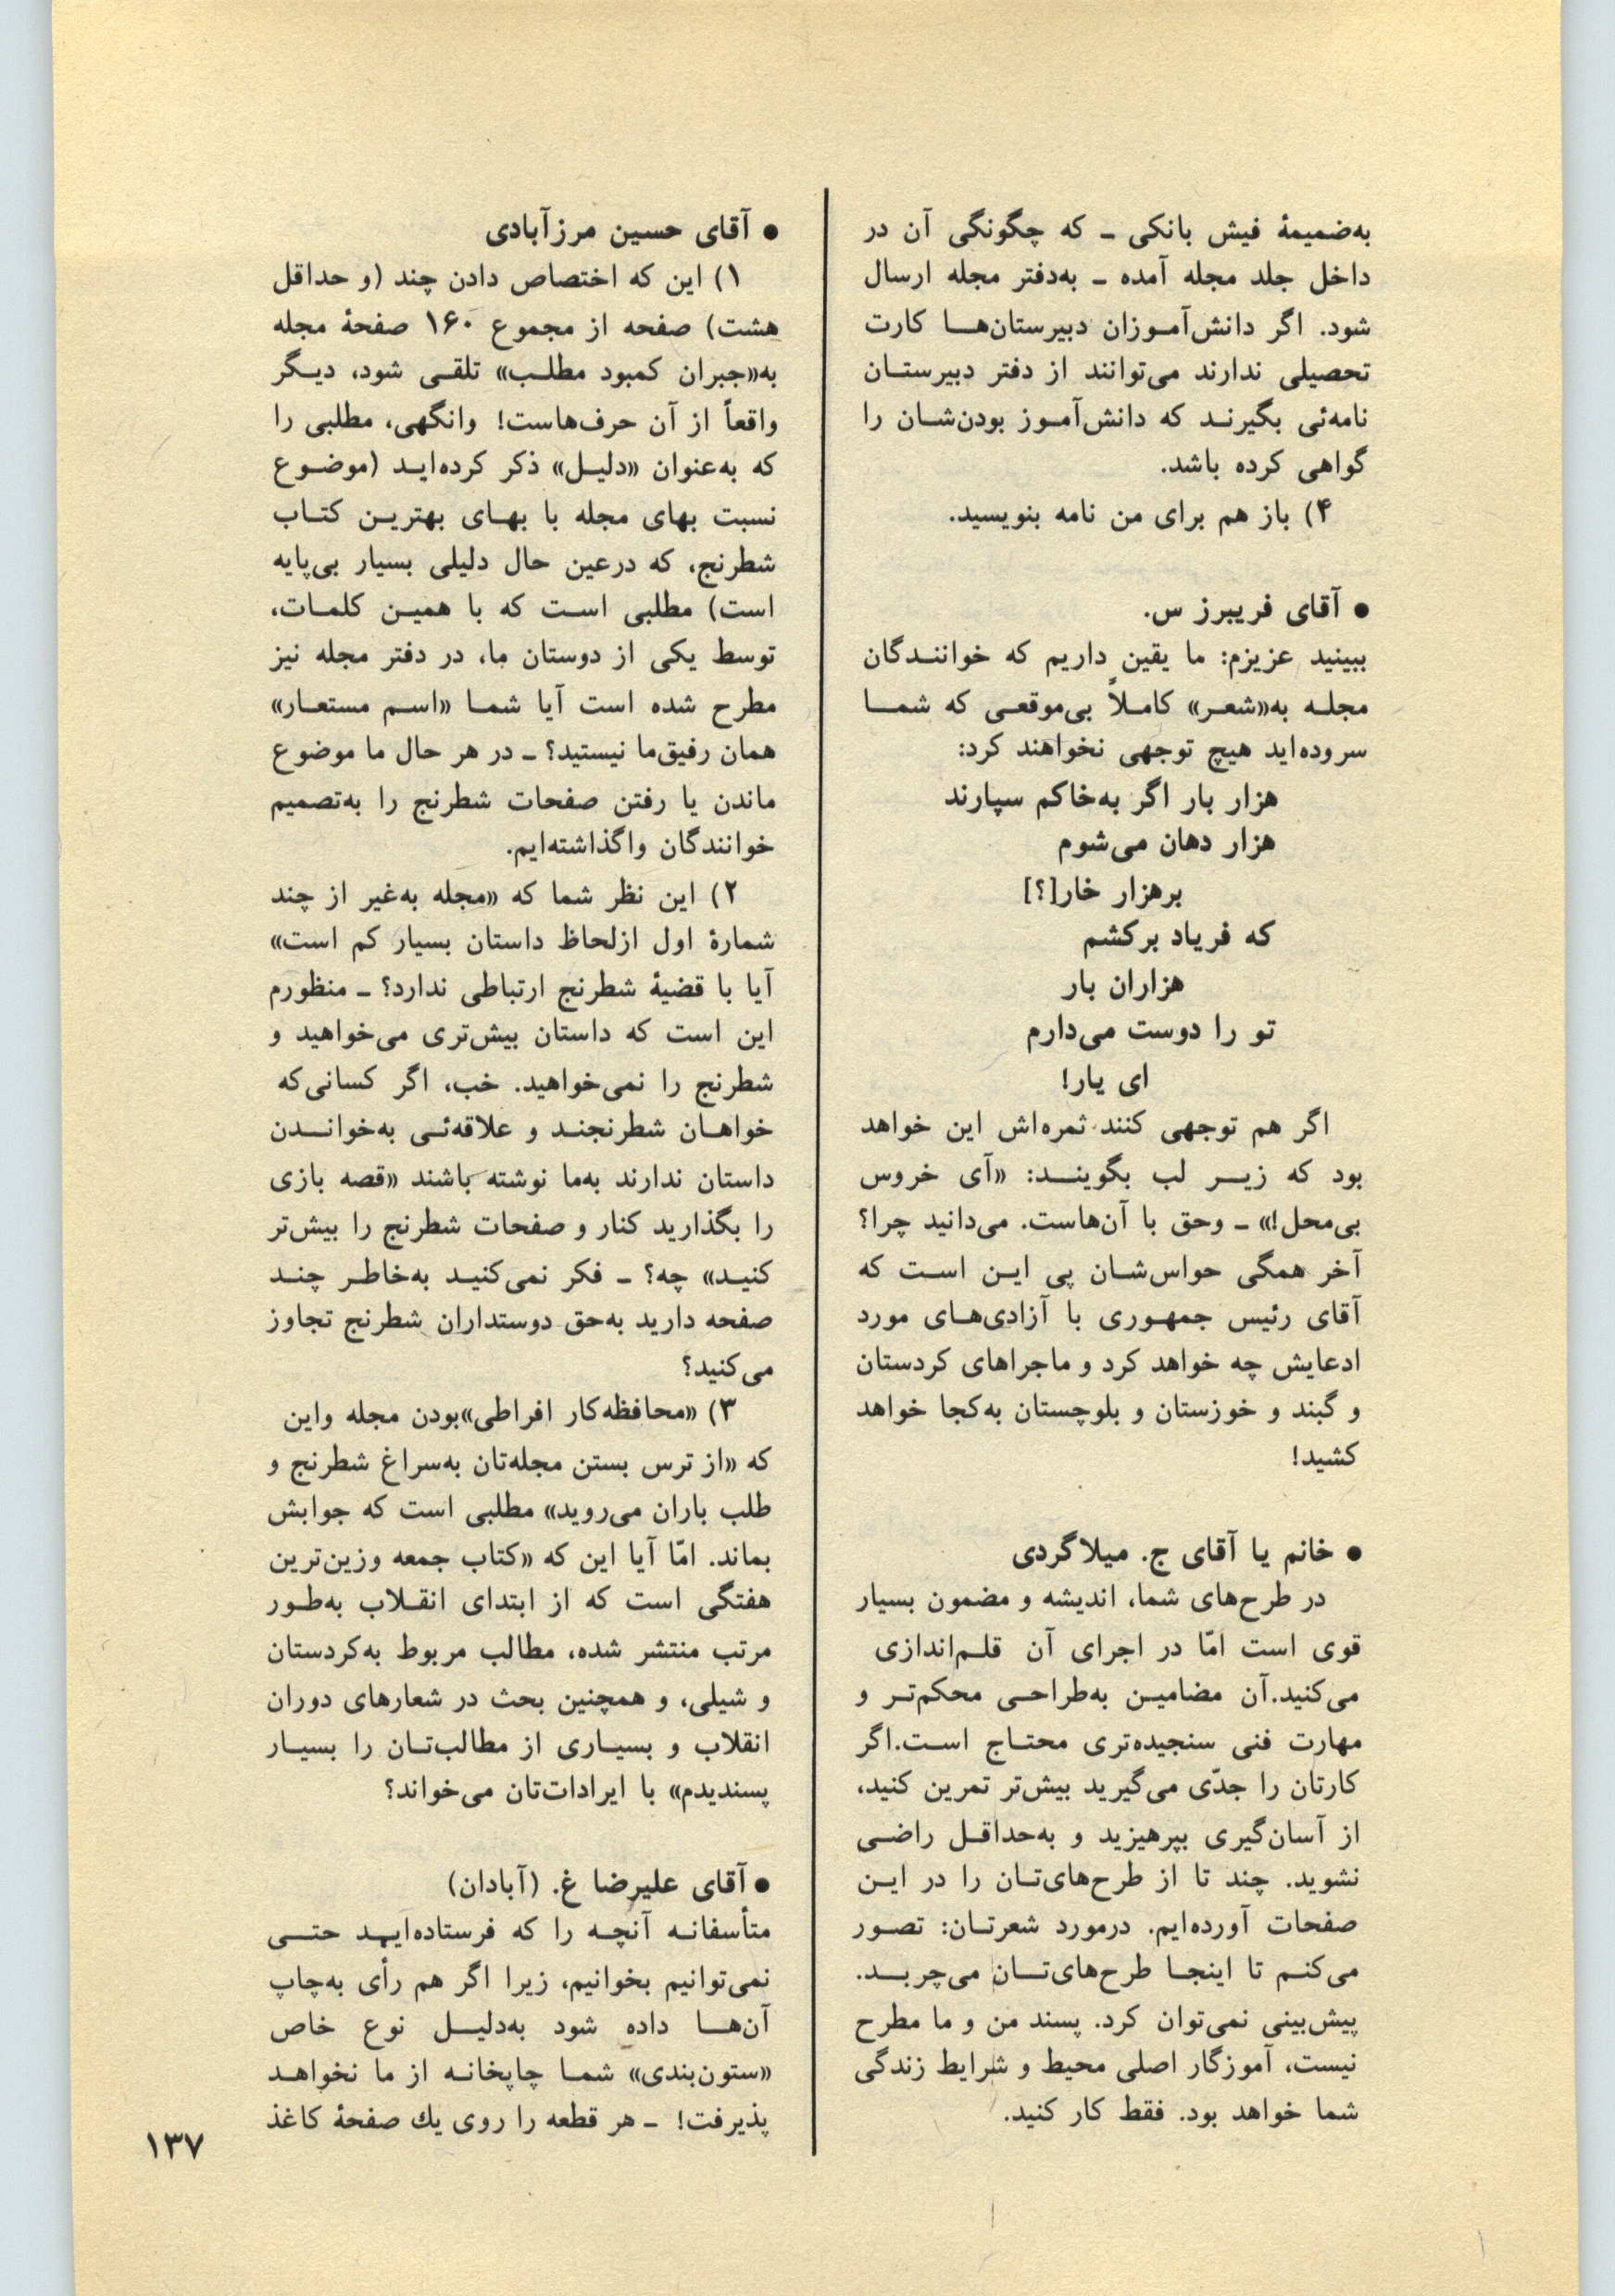 به‌ضمیمهٔ فیش بانکی ـ که چگونگی آن در
داخل جلد مجله آمده ـ به‌دفتر مجله ارسال
شود. اگر دانش‌آموزان دبیرستان‌ها کارت
تحصیلی ندارند می‌توانند از دفتر دبیرستان
نامه‌ئی بگیرند که دانش‌آموز بودن‌شان را
گواهی کرده باشد.
۴) باز هم برای من نامه بنویسید.
● آقای فریبرز س.
ببینید عزیزم: ما یقین داریم که خوانندگان
مجله به«شعر» کاملاً بی‌موقعی که شما
سروده‌اید هیچ توجهی نخواهند کرد:
هزار بار اگر به‌خاکم سپارند
هزار دهان می‌شوم
برهزار خار[؟]
که فریاد برکشم
هزاران بار
تو را دوست می‌دارم
ای یار!
اگر هم توجهی کنند ثمره‌اش این خواهد
بود که زیر لب بگویند: «آی خروس
بی‌محل!» ـ وحق با آن‌هاست. می‌دانید چرا؟
آخر همگی حواس‌شان پی این است که
آقای رئیس جمهوری با آزادی‌های مورد
ادعایش چه خواهد کرد و ماجراهای کردستان
و گبند و خوزستان و بلوچستان به‌کجا خواهد
کشید!
● خانم یا آقای ج. میلاگردی
در طرح‌های شما، اندیشه و مضمون بسیار
قوی است امّا در اجرای آن قلم‌اندازی
می‌کنید.آن مضامین به‌طراحی محکم‌تر و
مهارت فنی سنجیده‌تری محتاج است.اگر
کارتان را جدّی می‌گیرید بیش‌تر تمرین کنید،
از آسان‌گیری بپرهیزید و به‌حداقل راضی
نشوید. چند تا از طرح‌های‌تان را در این
صفحات آورده‌ایم. درمورد شعرتان: تصور
می‌کنم تا اینجا طرح‌های‌تان می‌چربد.
پیش‌بینی نمی‌توان کرد. پسند من و ما مطرح
نیست، آموزگار اصلی محیط و شرایط زندگی
شما خواهد بود. فقط کار کنید.
● آقای حسین مرزآبادی
۱) این که اختصاص دادن چند (و حداقل
هشت) صفحه از مجموع ۱۶۰ صفحهٔ مجله
به«جبران کمبود مطلب» تلقی شود، دیگر
واقعاً از آن حرف‌هاست! وانگهی، مطلبی را
که به‌عنوان «دلیل» ذکر کرده‌اید (موضوع
نسبت بهای مجله با بهای بهترین کتاب
شطرنج، که درعین حال دلیلی بسیار بی‌پایه
است) مطلبی است که با همین کلمات،
توسط یکی از دوستان ما، در دفتر مجله نیز
مطرح شده است آیا شما «اسم مستعار»
همان رفیق‌ما نیستید؟ ـ در هر حال ما موضوع
ماندن یا رفتن صفحات شطرنج را به‌تصمیم
خوانندگان واگذاشته‌ایم.
۲) این نظر شما که «مجله به‌غیر از چند
شمارهٔ اول ازلحاظ داستان بسیار کم است»
آیا با قضیهٔ شطرنج ارتباطی ندارد؟ ـ منظورم
این است که داستان بیش‌تری می‌خواهید و
شطرنج را نمی‌خواهید. خب، اگر کسانی‌که
خواهان شطرنجند و علاقه‌ئی به‌خواندن
داستان ندارند به‌ما نوشته باشند «قصه بازی
را بگذارید کنار و صفحات شطرنج را بیش‌تر
کنید» چه؟ ـ فکر نمی‌کنید به‌خاطر چند
صفحه دارید به‌حق دوستداران شطرنج تجاوز
می‌کنید؟
۳) «محافظه‌کار افراطی»بودن مجله واین
که «از ترس بستن مجله‌تان به‌سراغ شطرنج و
طلب باران می‌روید» مطلبی است که جوابش
بماند. امّا آیا این که «کتاب جمعه وزین‌ترین
هفتگی است که از ابتدای انقلاب به‌طور
مرتب منتشر شده، مطالب مربوط به‌کردستان
و شیلی، و همچنین بحث در شعارهای دوران
انقلاب و بسیاری از مطالب‌تان را بسیار
پسندیدم» با ایرادات‌تان می‌خواند؟
● آقای علیرضا غ. (آبادان)
متأسفانه آنچه را که فرستاده‌اید حتی
نمی‌توانیم بخوانیم، زیرا اگر هم رأی به‌چاپ
آن‌ها داده شود به‌دلیل نوع خاص
«ستون‌بندی» شما چاپخانه از ما نخواهد
پذیرفت! ـ هر قطعه را روی یك صفحهٔ کاغذ
۱۳۷